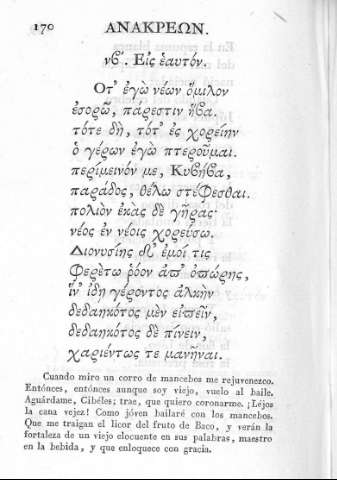 170 ΑΝΑΚΡΕΩΝ.
νβʹ. Εἰς ἑαυτόν.
Οτ' ἐγὼ νέων ὅμιλον
ἐσορῶ, παρεστιν ἥβα.
τότε δὴ, τότ' ἐς χορείην
ὁ γέρων ἐγὼ πτεροῦμαι.
περίμεινόν με, Κυβήβα,
παράδος, θέλω στέφεσθαι.
πολιὸν ἑκὰς δὲ γῆρας·
νέος ἐν νέοις χορεύσω.
Διονυσίης δ' ἐμοί τις
Φερέτω ῥόον ἀπ' ὀπώρης,
ἵν' ἴδῃ γέροντος ἀλκὴν
δεδαηκότος μὲν εἰπεῖν,
δεδαηκότος δὲ πίνειν,
χαριέντως τε μανῆναι.
Cuando miro un corro de mancebos me rejuvenezco.
Entónces, entónces aunque soy viejo, vuelo al baile.
Aguárdame, Cibéles; trae, que quiero coronarme. ¡Léjos
la cana vejez! Como jóven bailaré con los mancebos.
Que me traigan el licor del fruto de Baco, y verán la
fortaleza de un viejo elocuente en sus palabras, maestro
en la bebida, y que enloquece con gracia.